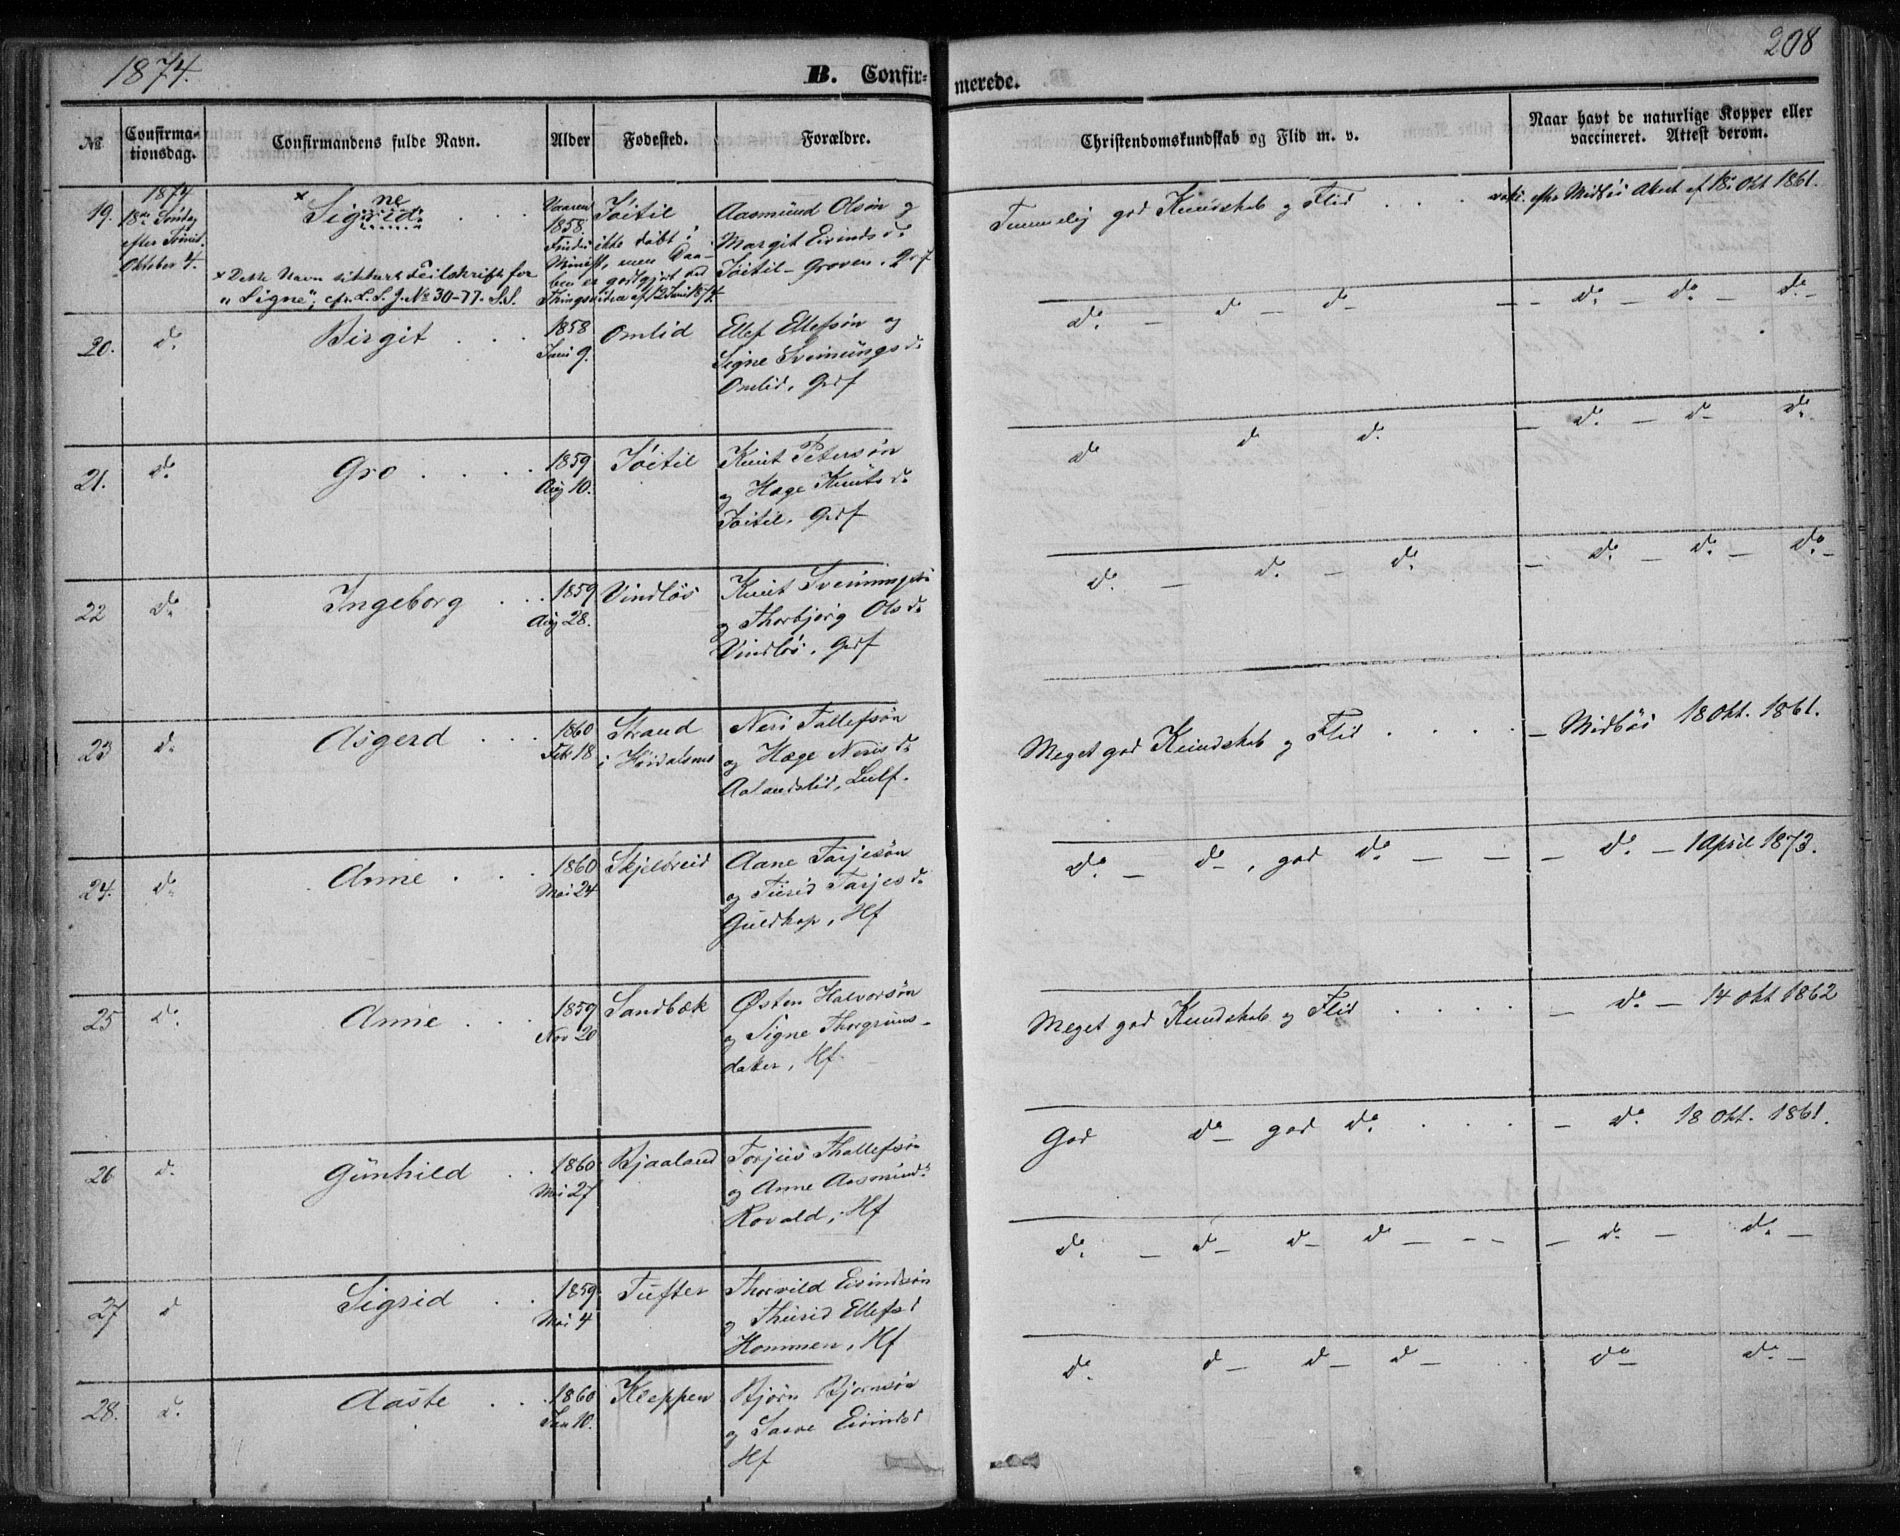 1874.
B. Confir-
merede.
208
No
Confirma-
tionsdag.
Confirmandens fulde Navn.
Alder
Fødested.
Forældre.
Christendomskundskab og Flid m. v.
Naar havt de naturlige Kopper eller
vaccineret. Attest derom.
19.
1874
18de Søndag
efter Trinit.
Oktober 4.
× ne
Sigrid . . .
× Dette Navn sikkert Feilskrift for
"Signe", cfr. L. S. J. No 30-77. S.S.
Vaaren
1858.
Jøitil
Findes ikke døbt i
Minist, men Daa-
ben er godtgjort ved
Thingsvidne af 12 Juni 1874.
Aasmund Olsøn og
Margit Eivindsd.
Jøitil-Groven. Grf
Temmelig god Kundskab og Flid . . .
vakc. efter Midbøs Attest af 18. Okt 1861.
20.
do
Birgit . . .
1858
Juni 9.
Omlid
Ellef Ellefsøn og
Signe Sveinungsd.
Omlid. Grf
do. — do — do
— do. — do. — do. —
21.
do
Gro . . . .
1859
Aug 10.
Jøitil
Knut Petersøn
og Hæge Knutsd.
Jøitil. Grf
do do do.
— do. — do — do.
22
do.
Ingeborg . . .
1859
Aug 28.
Vindløs
Knut Sveinungs.
og Thorbjørg Olsd.
Vindløs. Grf
do. — do. — do.
— do. — do. — do. —
23
do.
Asgerd . . .
1860
Feb 18
Strand
i Høidalsmo
Neri Tallefsøn
og Hæge Nerisd.
Aalandslid, Lulf.
Meget god Kundskab og Flid . . . .
— Midbøs 18 Okt. 1861.
24.
do.
Anne . . .
1860
Mai 24
Skjeldreid
Aane Tarjesøn
og Turid Tarjesd.
Guldkop, Hf
do. — do — , god do. — — —
do. — 1 April 1873.
25
do.
Anne . . .
1859
Nov 20
Sandbæk
Østen Halvorsøn
og Signe Thorgrims-
datter, Hf.
Meget god Kundskab og Flid . . . .
do. — 14 Okt 1862
26
do.
Gunhild . .
1860
Mai 27
Bjaaland
Torjus Thallefsøn
og Anne Aasmundsd.
Rovald, Hf
God do — god do. . . .
— do. 18 Okt. 1861.
27
do
Sigrid . . .
1859
Mai 4
Tufter
Thorvild Eivindsøn
og Thurid Ellefsd
Hommen, Hf
do. — do — do — do — - -
— do. — do. —
28.
do.
Aaste . . .
1860
Jan 10.
Kleppen
Bjørn Bjørnsøn
og Saave Eivindsd
Hf
do. do — do — do — . .
do — do. —